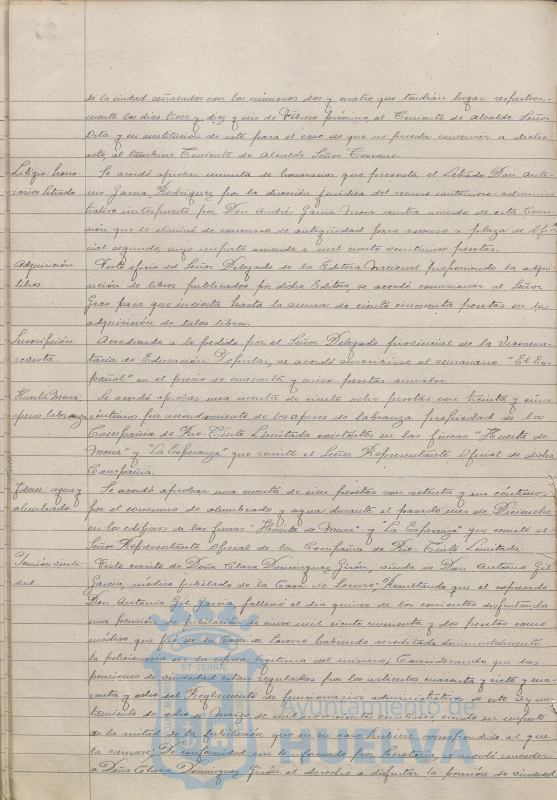 de la ciudad señalados con los números dos y cuatro que tendrán lugar respectiva-
mente los días trece y diez y seis de Febrero próximo al Teniente de Alcalde Señor
Oxta y en sustitución de este para el caso de que no pueda concurrir a dicho
acto, al también Teniente de Alcalde Señor
Litigio: hono-
rarios Letrado
Se acordó aprobar minuta de honorarios que presenta el Letrado Don Anto-
nio García Rodríguez por la dirección jurídica del recurso contencioso-adminis-
trativo interpuesto por Don André García Mora contra acuerdo de esta Comi-
sión que le eliminó de concurso de antigüedad para ascenso a plaza de Ofi-
cial segundo, cuyo importe asciende a mil ciento pesetas.
Adquisición
libros
Visto oficio del Señor Delegado de la Editora Nacional proponiendo la adqui-
sición de libros publicados por dicha Editora se acordó comisionar al Señor
Gras para que invierta hasta la suma de ciento cincuenta pesetas en la
adquisición de tales libros.
Suscripción
revista.
Accediendo a lo pedido por el Señor Delegado provincial de la Vicesecre-
taría de Educación Popular, se acordó suscribirse al semanario "El Es-
pañol" en el precio de cuarenta y cinco pesetas anuales.
Huerta Mena:
aperos labranza
Se acordó aprobar una cuenta de ciento ocho pesetas con treinta y cinco
céntimos por arrendamiento de los aperos de labranza propiedad de la
Compañía de Rio-Tinto Limitada existentes en las fincas "Huerta de
Mena" y "La Esperanza" que remite el Señor Representante Oficial de dicha
Compañía.
Idem: agua y
alumbrado
Se acordó aprobar una cuenta de once pesetas con setenta y un céntimos
por el consumo de alumbrado y agua durante el pasado mes de Diciembre
en los edificios de las fincas "Huerta de Mena" y "La Esperanza" que remite el
Señor Representante Oficial de la Compañía de Rio-Tinto Limitada.
Pensión viude-
dad.
Visto escrito de Doña Clara Domínguez Girón, viuda de Don Antonio Gil
García, médico jubilado de la Casa de Socorro; Resultando que el expresado
Don Antonio Gil García, falleció el día quince de los corrientes disfrutando
una pensión de jubilación de cinco mil ciento cincuenta y dos pesetas como
médico que fué de la Casa de Socorro habiendo acreditado documentalmente
la peticionaria ser la esposa legítima del mismo; Considerando que las
pensiones de viudedad están reguladas por los artículos cuarenta y siete y cua-
renta y ocho del Reglamento de funcionarios administrativos de este Ayun-
tamiento de ocho de Marzo de mil novecientos siendo su importe
de la mitad de la jubilación que en su caso hubiere correspondido al que
la causare; De conformidad con lo informado por Secretaría, se acordó conceder
a Doña Clara Domínguez Girón el derecho a disfrutar la pensión de viudedad
ET TERRA
Ayuntamiento de
HUELVA